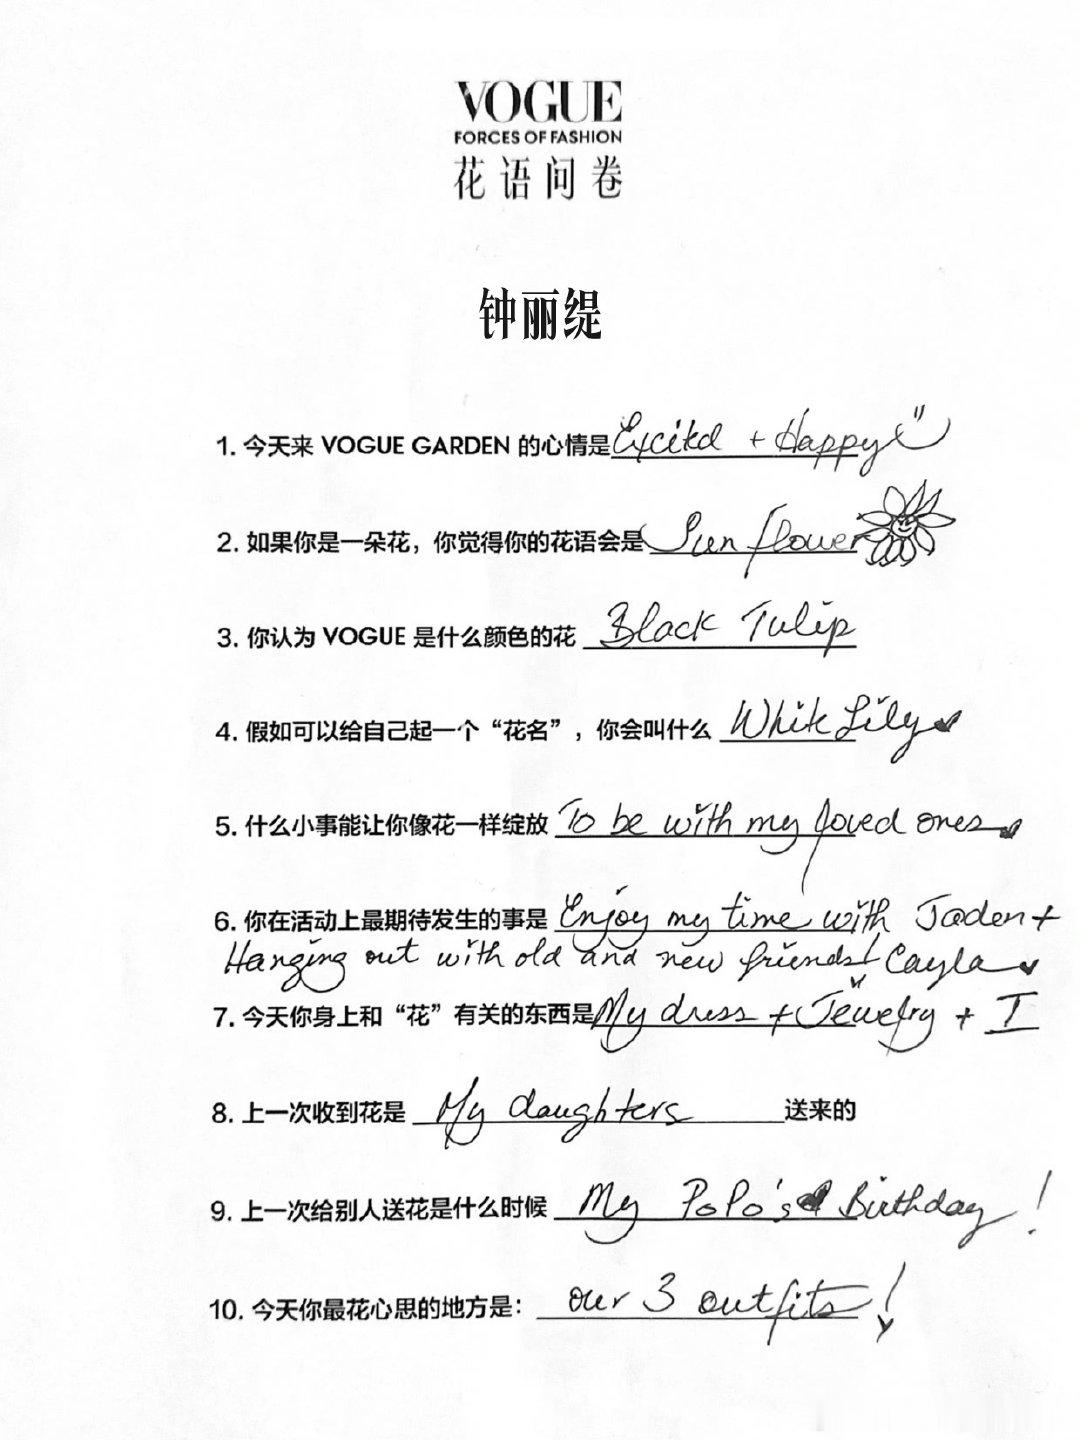 VOGUE
FORCES OF FASHION
花语问卷
钟丽缇
1. 今天来 VOGUE GARDEN 的心情是 Excited + Happy
2. 如果你是一朵花，你觉得你的花语会是 Sunflower
3. 你认为 VOGUE 是什么颜色的花 Black Tulip
4. 假如可以给自己起一个“花名”，你会叫什么 White Lily
5. 什么小事能让你像花一样绽放 To be with my loved ones
6. 你在活动上最期待发生的事是 Enjoy my time with Jaden +
Hanging out with old and new friends! Cayla
7. 今天你身上和“花”有关的东西是 My dress + Jewelry + I
8. 上一次收到花是 My daughters 送来的
9. 上一次给别人送花是什么时候 My PoPo's Birthday!
10. 今天你最花心思的地方是： our 3 outfits!